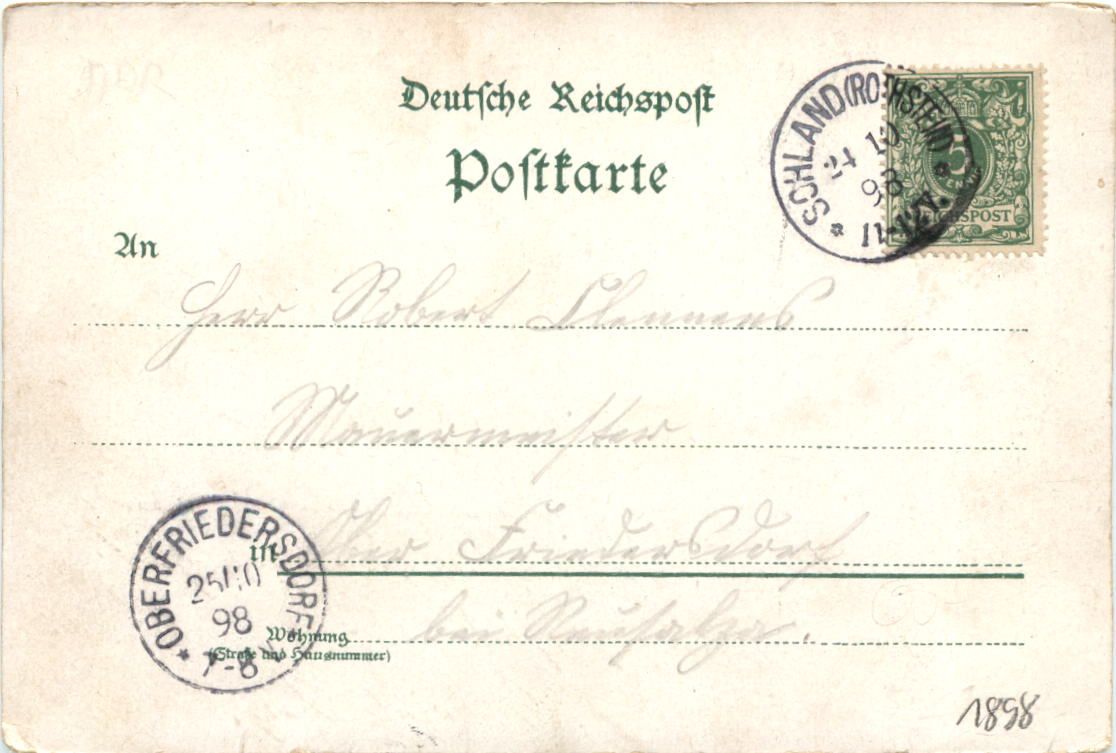 Deutsche Reichspost
Postkarte
SOHLAND (ROTHSTEIN)
24 10
98
11-12V.
5
REICHSPOST
An
Herr Robert Clemens
Mauermeister
in Ober Friedersdorf
OBERFRIEDERSDORF
25 10
98
7-8
bei Neusalza.
Wohnung
(Straße und Hausnummer)
1898